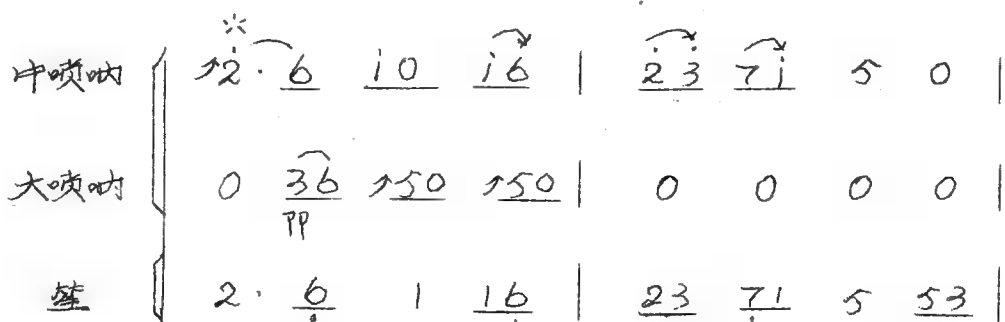 中唢呐 ↗2̇· 6 1̇0 1̇6 | 2̇3̇ 71̇ 5 0 |
大唢呐 0 36 ↗50 ↗50 | 0 0 0 0 |
pp
笙 2· 6̣ 1 16̣ | 23 7̣1 5 53 |